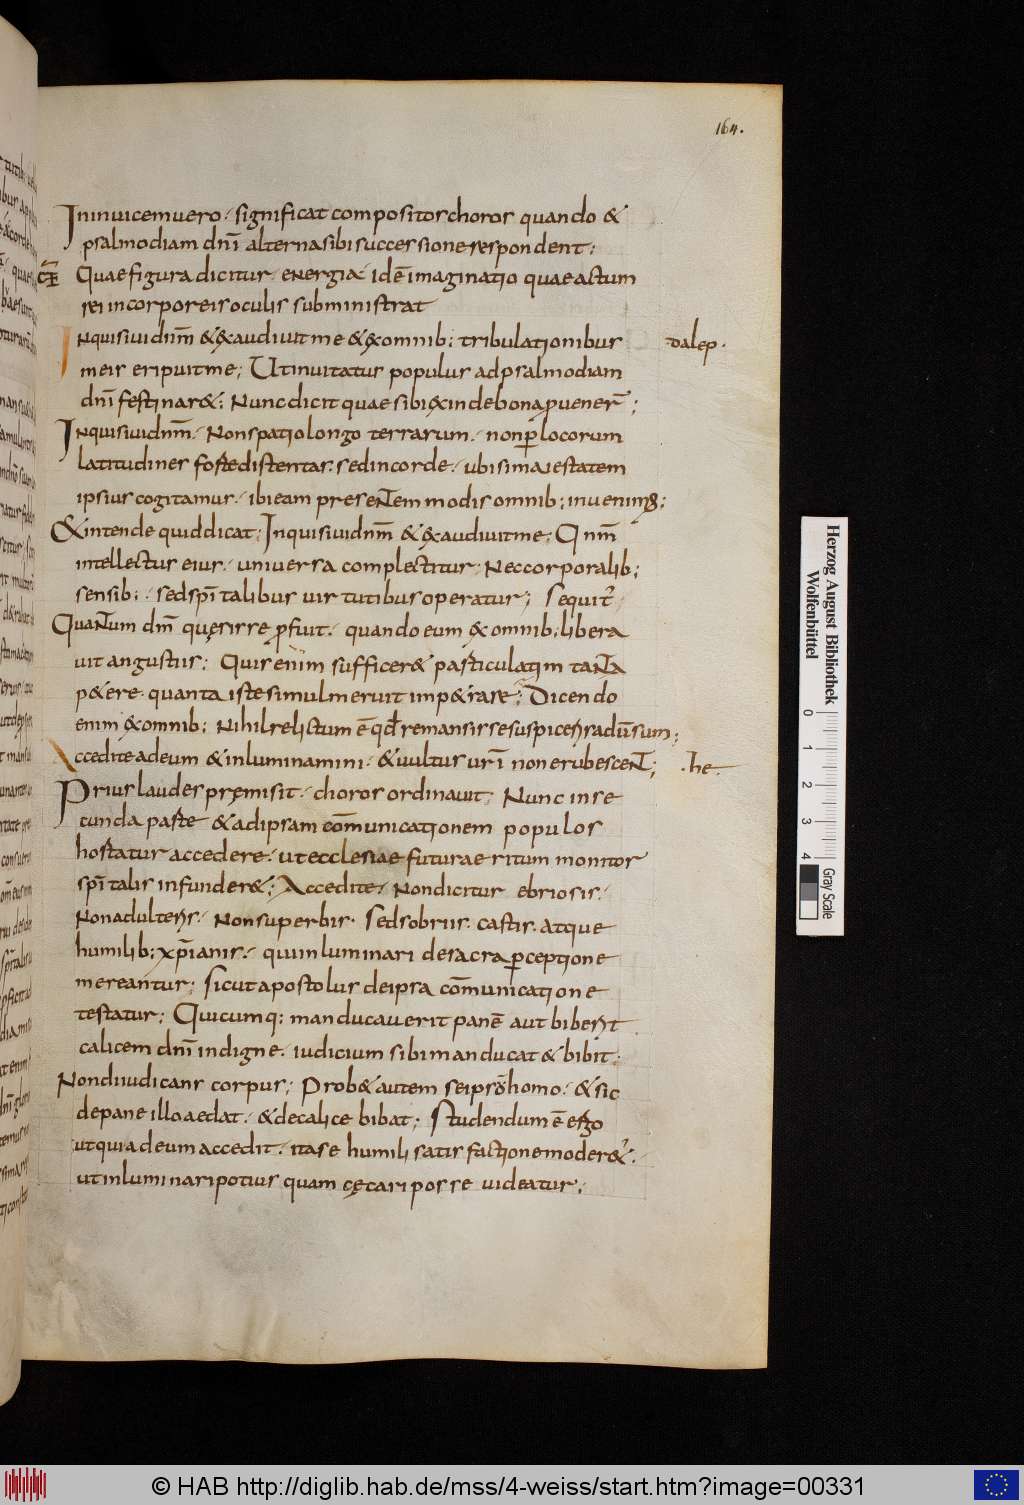 164.
In inuicem uero· significat compositos choros quando &
psalmodiam dnī alterna sibi successione respondent:
Quae figura dicitur· energia· idē imaginatio quae actum
rei incorporeis oculis subministrat
Inquisiui dnm̄ & exaudiuit me & ex omnib; tribulationibus
dalep·
meis eripuit me; Ut inuitatur populus ad psalmodiam
dnī festinar&; Nunc dicit quae sibi exinde bona ꝓuener̄;
Inquisiui dnm̄· Non spatio longo terrarum· non ꝑ locorum
latitudines foste distentas· sed in corde· ubi si maiestatem
ipsius cogitamus· ibi eam presentem modis omnib; inuenimꝰ;
& intende quid dicat; Inquisiui dnm̄ & exaudiuit me; Qnm̄
intellectus eius· uniuersa complectitur; Nec corporalib;
sensib;· sed spī talibus uirtutibus operatur; Sequit᷑·
Quantum dnm̄ quęsisse ꝓfuit· quando eum ex omnib; libera
uit angustiis; Quis enim sufficer& pasticulatim tanta
p&ere· quanta iste simul meruit imp&rare; Dicendo
enim ex omnib; Nihil relictum ē qd̄ remansisse suspicen radūsum;
Accedite ad eum & inluminamini· & uultus urī non erubescent;
·he·
Prius laudes pręmisit· choros ordinauit; Nunc in se
cunda paste & ad ipsam cōmunicationem populos
hostatur accedere· ut ecclesiae futurae ritum monitor
spī talis infunder&; Accedite· Non dicitur ebriosis·
Non adulteris· Non superbis· Sed sobriis· castis· atque
humilib; xp̄ianis·· qui inluminari de sacra ꝑceptione
mereantur; Sicut apostolus de ipsa cōmunicatione
testatur; Quicumq; manducauerit panē aut biberit
calicem dnī indigne· iudicium sibi manducat & bibit;
Non diiudicans corpus; Prob& autem seipsō homo· & sic
de pane illo aedat· & de calice bibat; Studendum ē esgo
ut qui ad eum accedit· ita se humili satisfactione moder&᷑·
ut inluminari potius quam cęcari posse uideatur;
Herzog August Bibliothek
Wolfenbüttel
0 1 2 3 4
Gray Scale
© HAB http://diglib.hab.de/mss/4-weiss/start.htm?image=00331